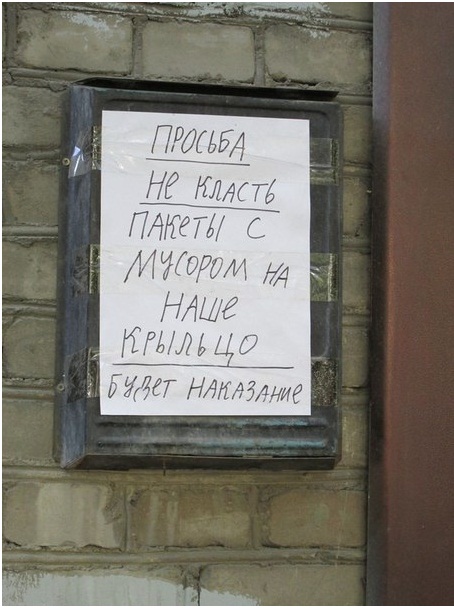 ПРОСЬБА
НЕ КЛАСТЬ
ПАКЕТЫ С
МУСОРОМ НА
НАШЕ
КРЫЛЬЦО
БУДЕТ НАКАЗАНИЕ